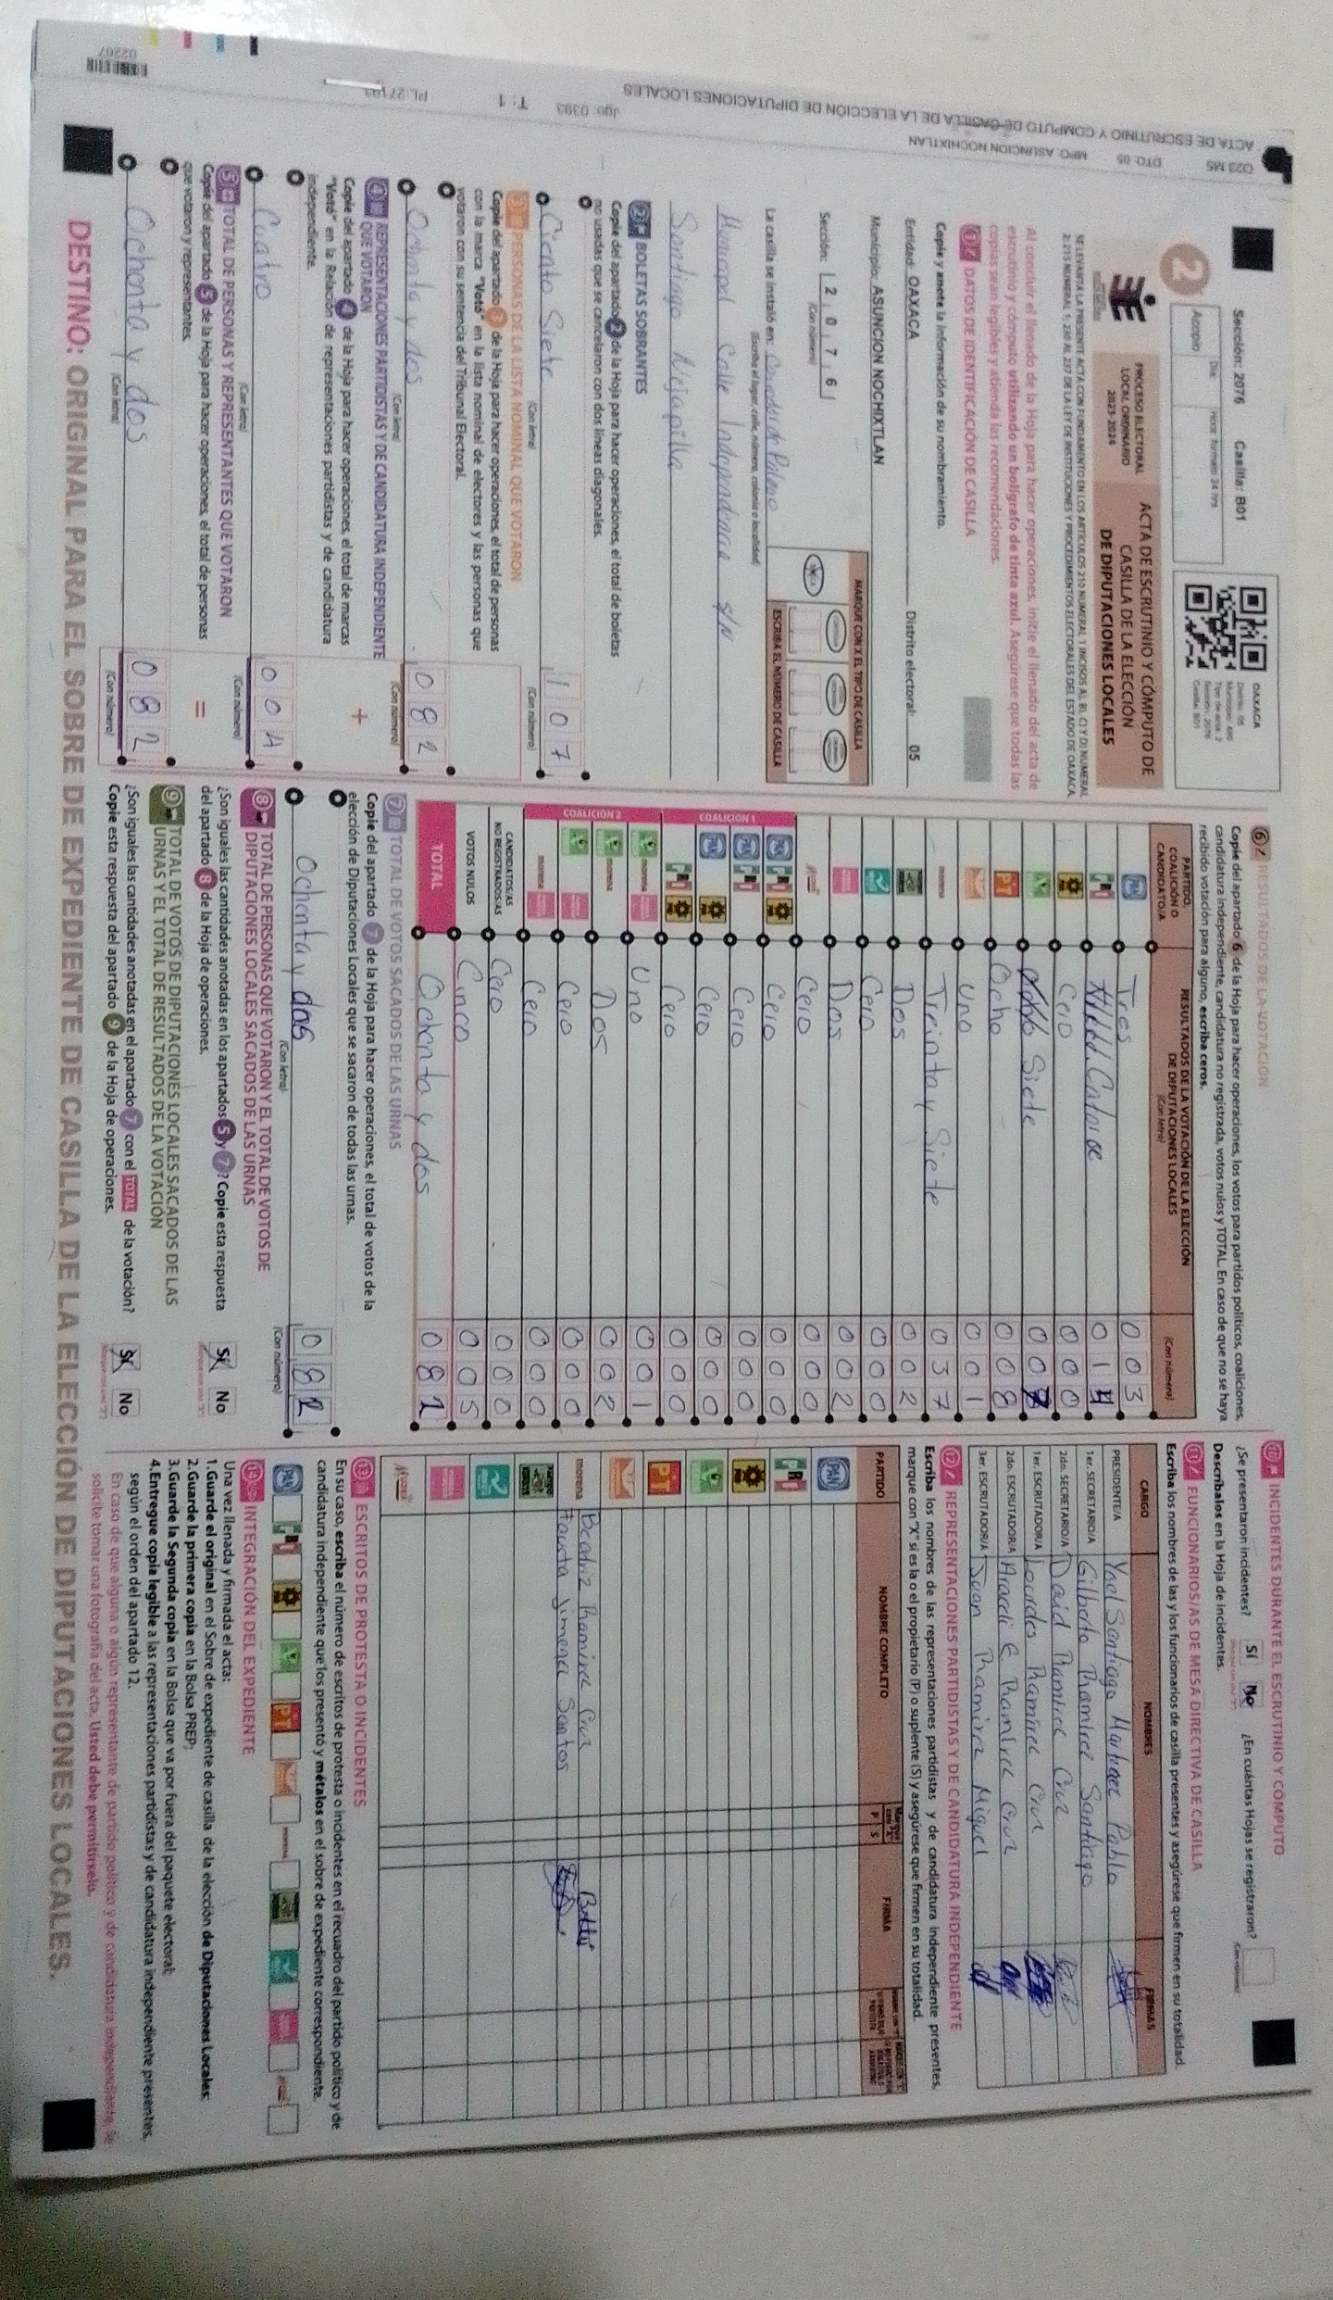 Sección: 2076 Casilla: B01
Acopio
2
PROCESO ELECTORAL
LOCAL ORDINARIO
2023-2024
ACTA DE ESCRUTINIO Y CÓMPUTO DE
CASILLA DE LA ELECCIÓN
DE DIPUTACIONES LOCALES
OAXACA
Al concluir el llenado de la Hoja para hacer operaciones, inicie el llenado del acta de
escrutinio y cómputo utilizando un bolígrafo de tinta azul. Asegúrese que todas las
copias sean legibles y atienda las recomendaciones.
1 DATOS DE IDENTIFICACIÓN DE CASILLA
Copie y anote la información de su nombramiento.
Entidad: OAXACA Distrito electoral: 05
Municipio: ASUNCION NOCHIXTLAN
Sección: 2 0 7 6
(Con número)
MARQUE CON X EL TIPO DE CASILLA
ESCRIBA EL NÚMERO DE CASILLA
La casilla se instaló en:
(Escriba el lugar, calle, número, colonia o localidad)
Municipal Calle Independencia S/N
Santiago Nejapilla
2 BOLETAS SOBRANTES
Copie del apartado 2 de la Hoja para hacer operaciones, el total de boletas
no usadas que se cancelaron con dos líneas diagonales.
Ciento Siete 107
(Con letra) (Con número)
3 PERSONAS DE LA LISTA NOMINAL QUE VOTARON
Copie del apartado 3 de la Hoja para hacer operaciones, el total de personas
con la marca "Votó" en la lista nominal de electores y las personas que
votaron con su sentencia del Tribunal Electoral.
Ochenta y dos 082
(Con letra) (Con número)
4 REPRESENTACIONES PARTIDISTAS Y DE CANDIDATURA INDEPENDIENTE
QUE VOTARON
Copie del apartado 4 de la Hoja para hacer operaciones, el total de marcas
"Votó" en la Relación de representaciones partidistas y de candidatura
independiente.
+
Cuatro 004
(Con letra) (Con número)
5 TOTAL DE PERSONAS Y REPRESENTANTES QUE VOTARON
Copie del apartado 5 de la Hoja para hacer operaciones, el total de personas
que votaron y representantes.
=
Ochenta y dos 082
(Con letra) (Con número)
6 RESULTADOS DE LA VOTACIÓN
Copie del apartado 6 de la Hoja para hacer operaciones, los votos para partidos políticos, coaliciones,
candidatura independiente, candidatura no registrada, votos nulos y TOTAL. En caso de que no se haya
recibido votación para alguno, escriba ceros.
PARTIDO, COALICIÓN O CANDIDATO/A
RESULTADOS DE LA VOTACIÓN DE LA ELECCIÓN
DE DIPUTACIONES LOCALES
(Con letra) (Con número)
PAN Tres 003
PRI Catorce 014
PRD Cero 000
Siete 007
PT Ocho 008
Uno 001
morena Treinta y Siete 037
Dos 002
Cero 000
Dos 002
Cero 000
COALICIÓN 1
PAN PRI PRD Cero 000
PAN PRI Cero 000
PAN PRD Cero 000
PRI PRD Cero 000
COALICIÓN 2
morena Uno 001
morena Dos 002
Cero 000
morena Cero 000
CANDIDATOS/AS
NO REGISTRADOS/AS Cero 000
VOTOS NULOS Cinco 005
TOTAL Ochenta y dos 082
7 TOTAL DE VOTOS SACADOS DE LAS URNAS
Copie del apartado 7 de la Hoja para hacer operaciones, el total de votos de la
elección de Diputaciones Locales que se sacaron de todas las urnas.
Ochenta y dos 082
(Con letra) (Con número)
8 TOTAL DE PERSONAS QUE VOTARON Y EL TOTAL DE VOTOS DE
DIPUTACIONES LOCALES SACADOS DE LAS URNAS
¿Son iguales las cantidades anotadas en los apartados 5 y 7? Copie esta respuesta
del apartado 8 de la Hoja de operaciones.
Sí No
9 TOTAL DE VOTOS DE DIPUTACIONES LOCALES SACADOS DE LAS
URNAS Y EL TOTAL DE RESULTADOS DE LA VOTACIÓN
¿Son iguales las cantidades anotadas en el apartado 7 con el TOTAL de la votación?
Copie esta respuesta del apartado 9 de la Hoja de operaciones.
Sí No
10 INCIDENTES DURANTE EL ESCRUTINIO Y CÓMPUTO
¿Se presentaron incidentes? Sí No ¿En cuántas Hojas se registraron?
Descríbalos en la Hoja de incidentes.
11 FUNCIONARIOS/AS DE MESA DIRECTIVA DE CASILLA
Escriba los nombres de las y los funcionarios de casilla presentes y asegúrese que firmen en su totalidad.
CARGO NOMBRES FIRMAS
PRESIDENTE/A Yael Santiago Martinez Pablo
1er. SECRETARIO/A Gilberto Ramirez Santiago
2do. SECRETARIO/A David Ramirez Cruz
1er. ESCRUTADOR/A Lourdes Ramirez Cruz
2do. ESCRUTADOR/A Araceli E Ramirez Cruz
3er. ESCRUTADOR/A Juan Ramirez Miguel
12 REPRESENTACIONES PARTIDISTAS Y DE CANDIDATURA INDEPENDIENTE
Escriba los nombres de las representaciones partidistas y de candidatura independiente presentes,
marque con "X" si es la o el propietario (P) o suplente (S) y asegúrese que firmen en su totalidad.
PARTIDO NOMBRE COMPLETO P S FIRMA
PAN
PRI
PRD
PT
morena Beatriz Ramirez Cruz
Fausta Jimenez Santos
13 ESCRITOS DE PROTESTA O INCIDENTES
En su caso, escriba el número de escritos de protesta o incidentes en el recuadro del partido político y de
candidatura independiente que los presentó y métalos en el sobre de expediente correspondiente.
14 INTEGRACIÓN DEL EXPEDIENTE
Una vez llenada y firmada el acta:
1.Guarde el original en el Sobre de expediente de casilla de la elección de Diputaciones Locales;
2.Guarde la primera copia en la Bolsa PREP;
3.Guarde la Segunda copia en la Bolsa que va por fuera del paquete electoral;
4.Entregue copia legible a las representaciones partidistas y de candidatura independiente presentes,
según el orden del apartado 12.
En caso de que alguna o algún representante de partido político y de candidatura independiente, le
solicite tomar una fotografía del acta, Usted debe permitírselo.
DESTINO: ORIGINAL PARA EL SOBRE DE EXPEDIENTE DE CASILLA DE LA ELECCIÓN DE DIPUTACIONES LOCALES.
ACTA DE ESCRUTINIO Y COMPUTO DE CASILLA DE LA ELECCIÓN DE DIPUTACIONES LOCALES
DTO: 05 MPO: ASUNCION NOCHIXTLAN
Jgo: 0393 T: 1
02207